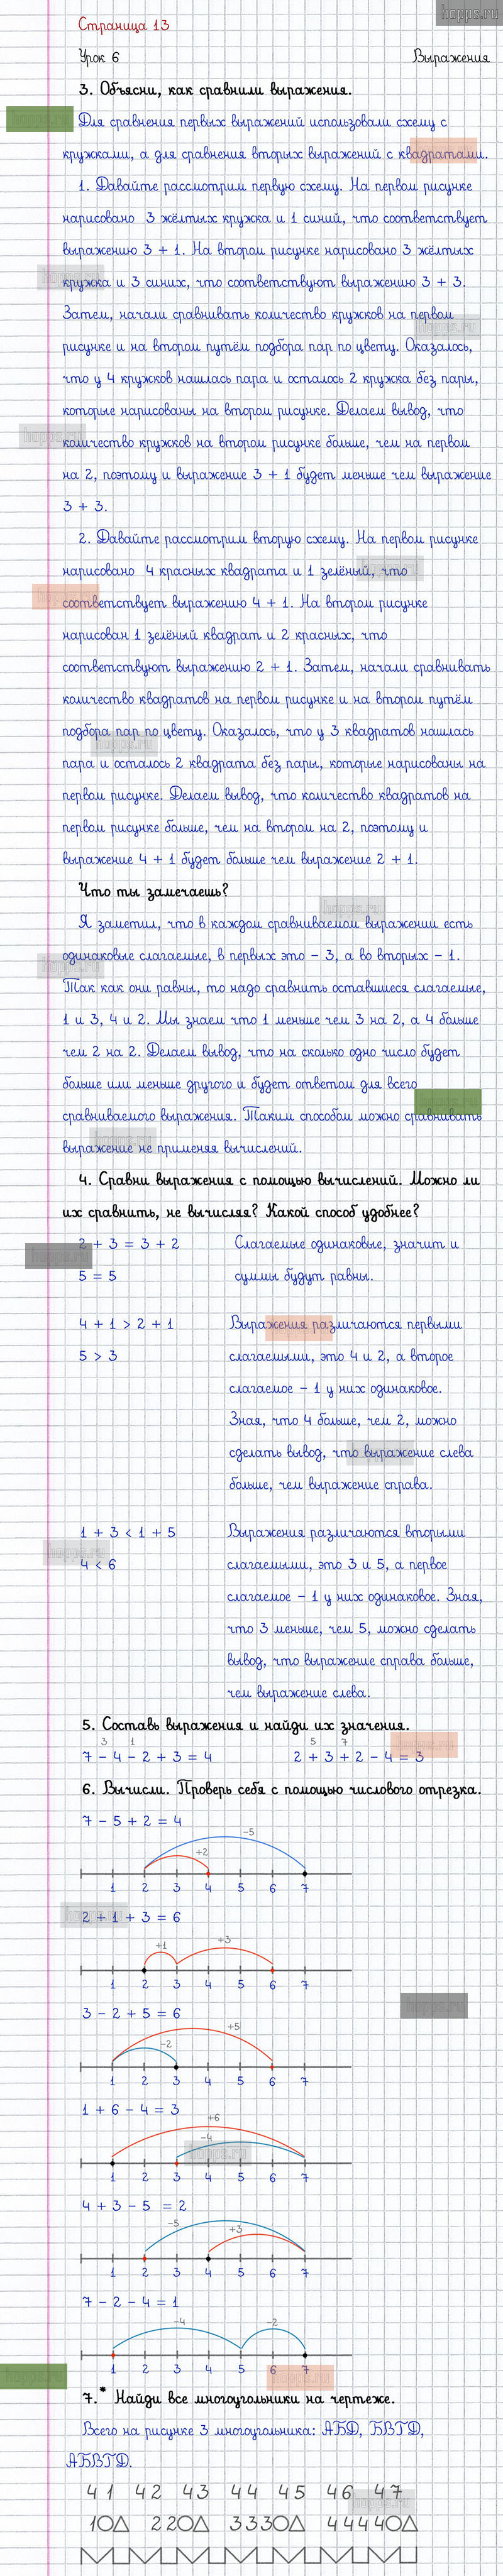 hopps.ru
Страница 13
Урок 6 Выражения
3. Объясни, как сравнили выражения.
Для сравнения первых выражений использовали схему с
кружками, а для сравнения вторых выражений с квадратами.
1. Давайте рассмотрим первую схему. На первом рисунке
нарисовано 3 жёлтых кружка и 1 синий, что соответствует
выражению 3 + 1. На втором рисунке нарисовано 3 жёлтых
кружка и 3 синих, что соответствуют выражению 3 + 3.
Затем, начали сравнивать количество кружков на первом
рисунке и на втором путём подбора пар по цвету. Оказалось,
что у 4 кружков нашлась пара и осталось 2 кружка без пары,
которые нарисованы на втором рисунке. Делаем вывод, что
количество кружков на втором рисунке больше, чем на первом
на 2, поэтому и выражение 3 + 1 будет меньше чем выражение
3 + 3.
2. Давайте рассмотрим вторую схему. На первом рисунке
нарисовано 4 красных квадрата и 1 зелёный, что
соответствует выражению 4 + 1. На втором рисунке
нарисован 1 зелёный квадрат и 2 красных, что
соответствуют выражению 2 + 1. Затем, начали сравнивать
количество квадратов на первом рисунке и на втором путём
подбора пар по цвету. Оказалось, что у 3 квадратов нашлась
пара и осталось 2 квадрата без пары, которые нарисованы на
первом рисунке. Делаем вывод, что количество квадратов на
первом рисунке больше, чем на втором на 2, поэтому и
выражение 4 + 1 будет больше чем выражение 2 + 1.
Что ты замечаешь?
Я заметил, что в каждом сравниваемом выражении есть
одинаковые слагаемые, в первых это – 3, а во вторых – 1.
Так как они равны, то надо сравнить оставшиеся слагаемые,
1 и 3, 4 и 2. Мы знаем что 1 меньше чем 3 на 2, а 4 больше
чем 2 на 2. Делаем вывод, что на сколько одно число будет
больше или меньше другого и будет ответом для всего
сравниваемого выражения. Таким способом можно сравнивать
выражение не применяя вычислений.
4. Сравни выражения с помощью вычислений. Можно ли
их сравнить, не вычисляя? Какой способ удобнее?
2 + 3 = 3 + 2 Слагаемые одинаковые, значит и
5 = 5 суммы будут равны.
4 + 1 > 2 + 1 Выражения различаются первыми
5 > 3 слагаемыми, это 4 и 2, а второе
слагаемое – 1 у них одинаковое.
Зная, что 4 больше, чем 2, можно
сделать вывод, что выражение слева
больше, чем выражение справа.
1 + 3 < 1 + 5 Выражения различаются вторыми
4 < 6 слагаемыми, это 3 и 5, а первое
слагаемое – 1 у них одинаковое. Зная,
что 3 меньше, чем 5, можно сделать
вывод, что выражение справа больше,
чем выражение слева.
5. Составь выражения и найди их значения.
3 1 5 7
7 – 4 – 2 + 3 = 4 2 + 3 + 2 – 4 = 3
6. Вычисли. Проверь себя с помощью числового отрезка.
7 – 5 + 2 = 4
–5
+2
1 2 3 4 5 6 7
2 + 1 + 3 = 6
+1 +3
1 2 3 4 5 6 7
3 – 2 + 5 = 6
+5
–2
1 2 3 4 5 6 7
1 + 6 – 4 = 3
+6
–4
1 2 3 4 5 6 7
4 + 3 – 5 = 2
–5
+3
1 2 3 4 5 6 7
7 – 2 – 4 = 1
–4 –2
1 2 3 4 5 6 7
7.* Найди все многоугольники на чертеже.
Всего на рисунке 3 многоугольника: АБД, БВГД,
АБВГД.
41 42 43 44 45 46 47
1○△ 22○△ 333○△ 4444○△